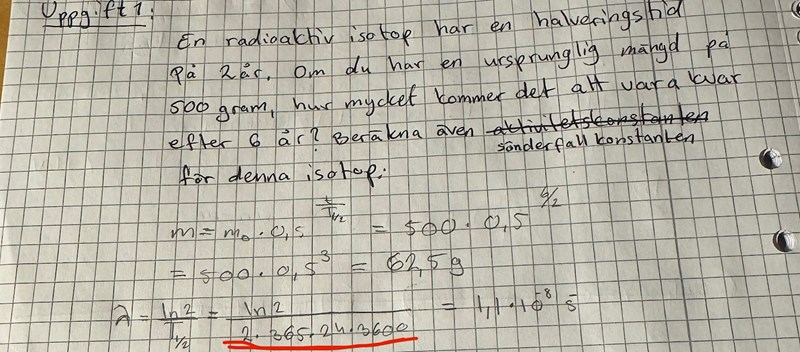 Uppgift 1:
En radioaktiv isotop har en halveringstid
på 2 år. Om du har en ursprunglig mängd på
500 gram, hur mycket kommer det att vara kvar
efter 6 år? Beräkna även aktivitetskonstanten
sönderfall konstanten
för denna isotop.
m = m₀ · 0,5^(t/T₁/₂) = 500 · 0,5^(6/2)
= 500 · 0,5³ = 62,5 g
λ = ln2/T₁/₂ = ln2/(2·365·24·3600) = 1,1·10⁻⁸ s⁻